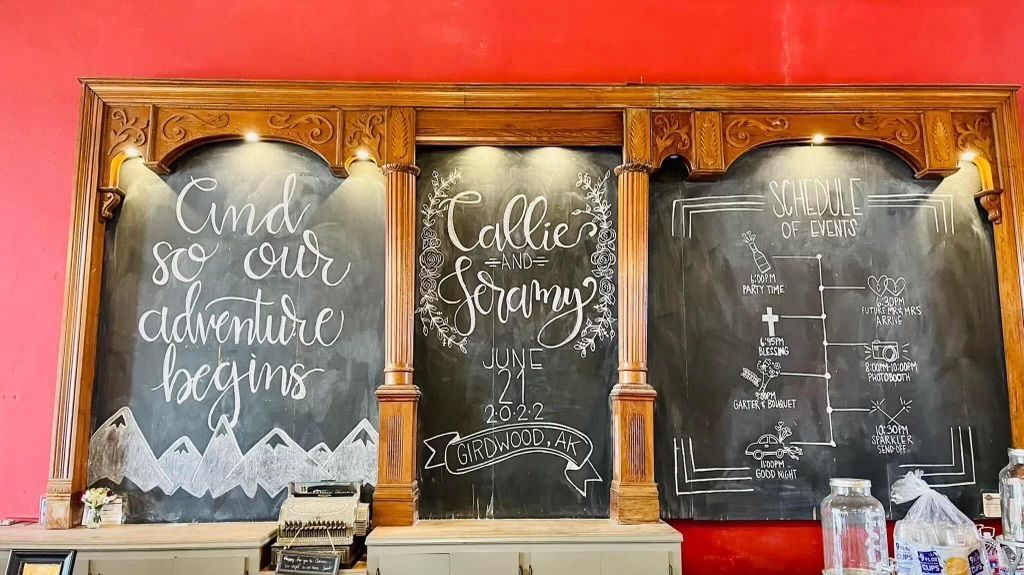 And
so our
adventure
begins
Callie
AND
Jeramy
JUNE
21
2022
GIRDWOOD, AK
SCHEDULE
OF EVENTS
6:00PM
PARTY TIME
6:30PM
FUTURE MR & MRS
ARRIVE
6:45PM
BLESSING
8:00PM-10:00PM
PHOTOBOOTH
GARTER & BOUQUET
10:30PM
SPARKLER
SEND-OFF
11:00PM
GOOD NIGHT
9 FL OZ
CUPS